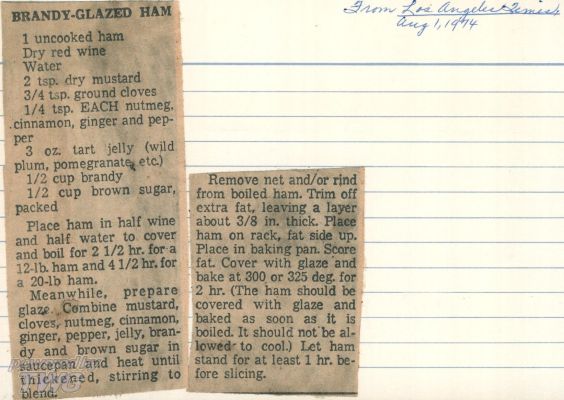 From Los Angeles Times
Aug 1, 1974
BRANDY-GLAZED HAM
1 uncooked ham
Dry red wine
Water
2 tsp. dry mustard
3/4 tsp. ground cloves
1/4 tsp. EACH nutmeg,
cinnamon, ginger and pep-
per
3 oz. tart jelly (wild
plum, pomegranate, etc.)
1/2 cup brandy
1/2 cup brown sugar,
packed
Place ham in half wine
and half water to cover
and boil for 2 1/2 hr. for a
12-lb. ham and 4 1/2 hr. for
a 20-lb ham.
Meanwhile, prepare
glaze. Combine mustard,
cloves, nutmeg, cinnamon,
ginger, pepper, jelly, bran-
dy and brown sugar in
saucepan and heat until
thickened, stirring to
blend.
Remove net and/or rind
from boiled ham. Trim off
extra fat, leaving a layer
about 3/8 in. thick. Place
ham on rack, fat side up.
Place in baking pan. Score
fat. Cover with glaze and
bake at 300 or 325 deg. for
2 hr. (The ham should be
covered with glaze and
baked as soon as it is
boiled. It should not be al-
lowed to cool.) Let ham
stand for at least 1 hr. be-
fore slicing.